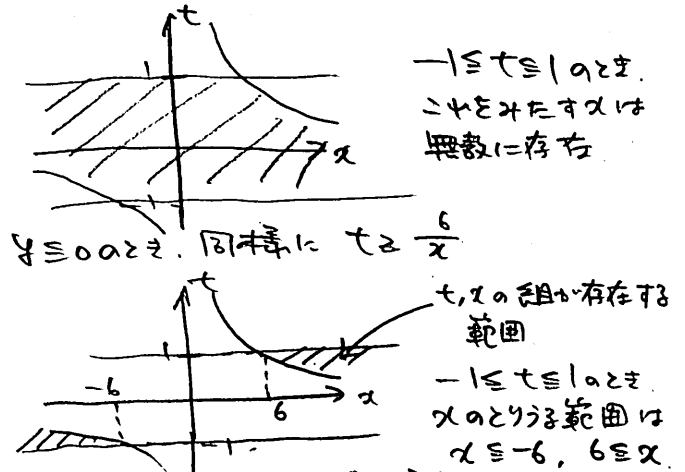 t
1
x
-1
-1≦t≦1のとき.
これをみたすxは
無数に存在
y≦0のとき. 同様に t≧6/x
t
t, xの組が存在する
範囲
1
-6
6
x
-1
-1≦t≦1のとき
xのとりうる範囲は
x≦-6, 6≦x